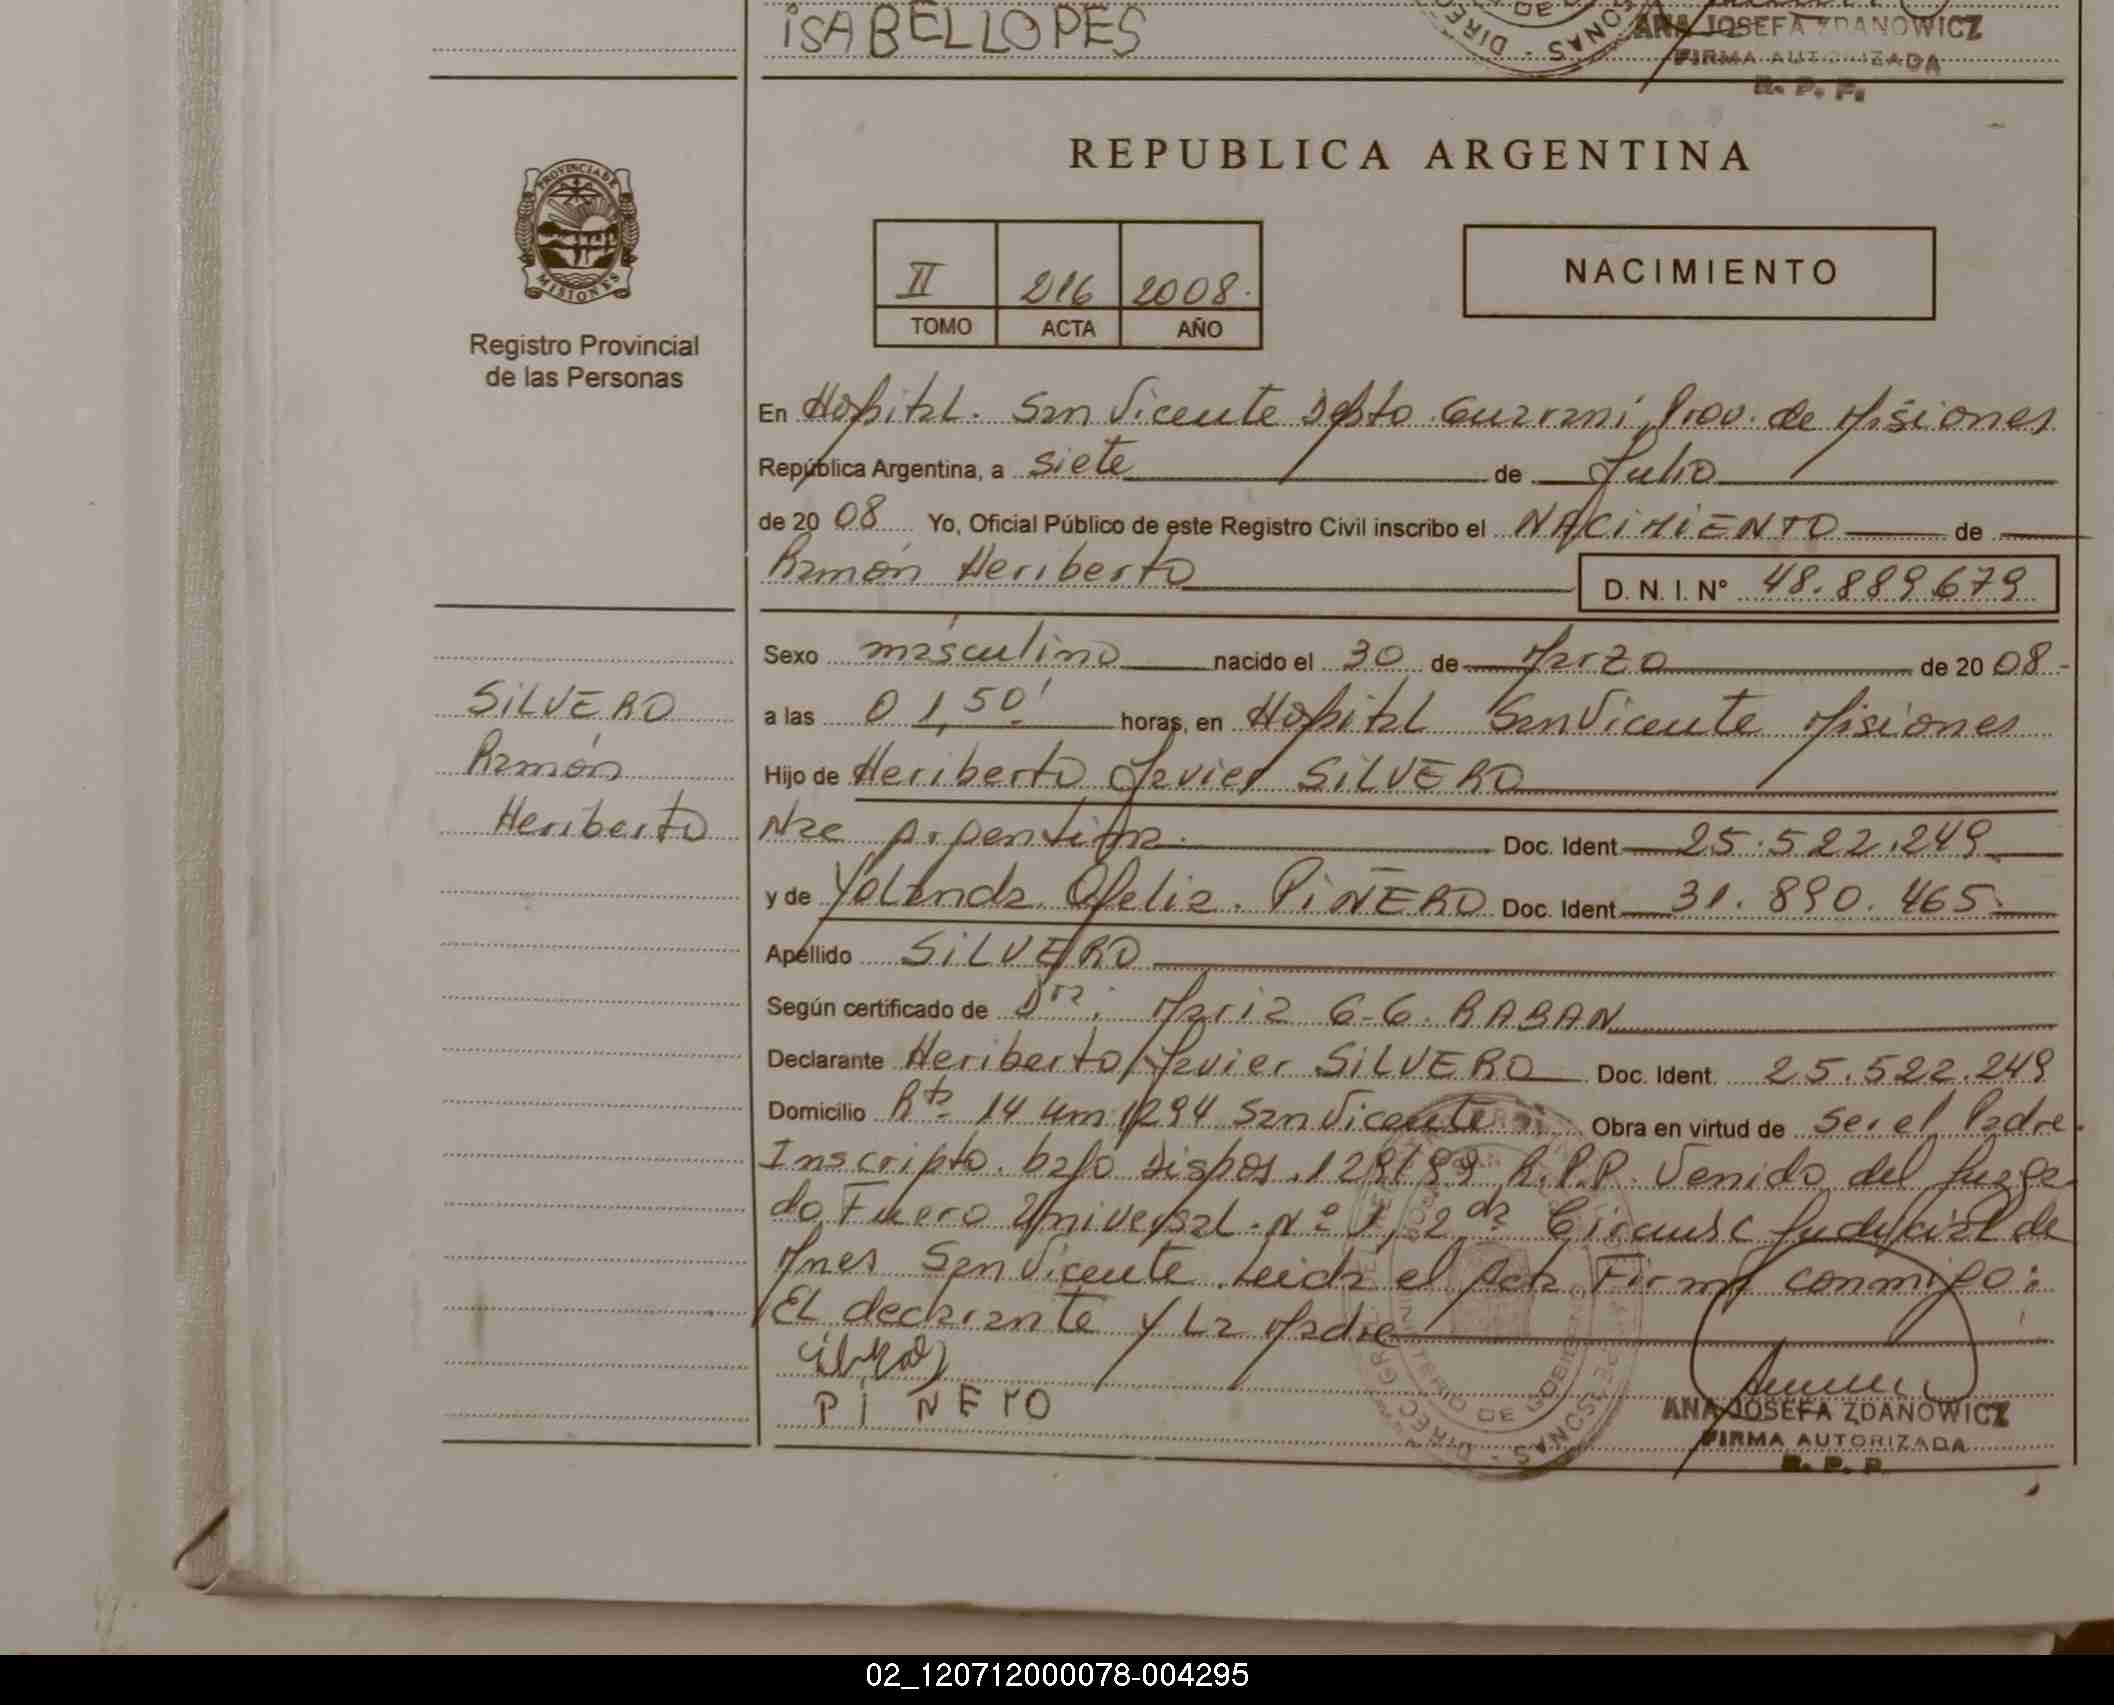 iSABELLOPES
ANA JOSEFA ZDANOWICZ
FIRMA AUTORIZADA
R. P. P.
REPUBLICA ARGENTINA
PROVINCIA DE MISIONES
Registro Provincial
de las Personas
II 216 2008.
TOMO ACTA AÑO
NACIMIENTO
En Hospital. San Vicente Dpto. Guarani, Prov. de Misiones
República Argentina, a siete de Julio
de 20 08 Yo, Oficial Público de este Registro Civil inscribo el NACIMIENTO de
Ramón Heriberto D. N. I. Nº 48.889.679
Sexo masculino nacido el 30 de Marzo de 20 08.-
a las 01,50' horas, en Hospital San Vicente Misiones
Hijo de Heriberto Javier SILVERO
Nac Argentina. Doc. Ident 25.522.249
y de Yolanda Ofelia. PIÑERO Doc. Ident 31.890.465.
Apellido SILVERO
Según certificado de Dra. Maria G-G. RABAN
Declarante Heriberto Javier SILVERO Doc. Ident. 25.522.249
Domicilio Rta 14 Km 1294 San Vicente Obra en virtud de Ser el Padre.
Inscripto. bajo Dispos. 129/99 R.P.P. Venido del Juzga
do Fuero Universal. Nº 1, 2da Circunsc Judicial de
Mnes San Vicente. Leida el Acta Firma conmigo:
EL declarante Y La Madre
PiÑErO
SILVERO
Ramón
Heriberto
ANA JOSEFA ZDANOWICZ
FIRMA AUTORIZADA
R. P. P.
MINISTERIO DE GOBIERNO
02_120712000078-004295